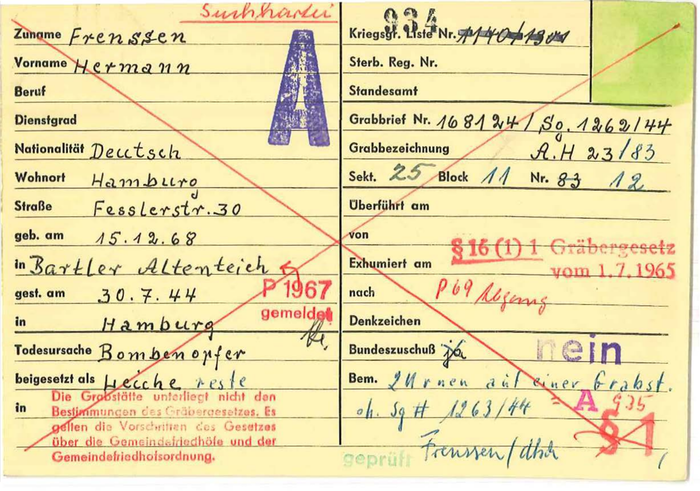 Suchkartei
Zuname Frenssen
Vorname Hermann
Beruf
Dienstgrad
Nationalität Deutsch
Wohnort Hamburg
Straße Fesslerstr. 30
geb. am 15.12.68
in Bartler Altenteich
gest. am 30.7.44
in Hamburg
Todesursache Bombenopfer
beigesetzt als Leiche reste
in
Die Grabstätte unterliegt nicht den
Bestimmungen des Gräbergesetzes. Es
gelten die Vorschriften des Gesetzes
über die Gemeindefriedhöfe und der
Gemeindefriedhofsordnung.
A
P 1967
gemeldet
934
Kriegsgr. Liste Nr. 1140/1301
Sterb. Reg. Nr.
Standesamt
Grabbrief Nr. 168124/Sg. 1262/44
Grabbezeichnung A.H 23/83
Sekt. 25 Block 11 Nr. 83 12
Überführt am
von
§ 16 (1) 1 Gräbergesetz
vom 1.7.1965
Exhumiert am
nach P 69 Abgang
Denkzeichen
Bundeszuschuß ja nein
Bem. 2 Urnen auf einer Grabst.
oh. Sg # 1263/44 = A 935
Frenssen/
§ 1
geprüft